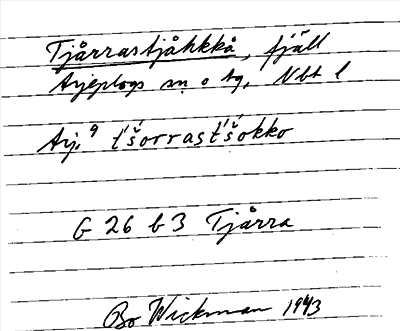 Tjårrastjåhkkå, fjäll
Arjeplogs sn o tg, Nbt l
Arj. 9 t́šorrast́šokko
G 26 b 3 Tjårra
Bo Wickman 1943